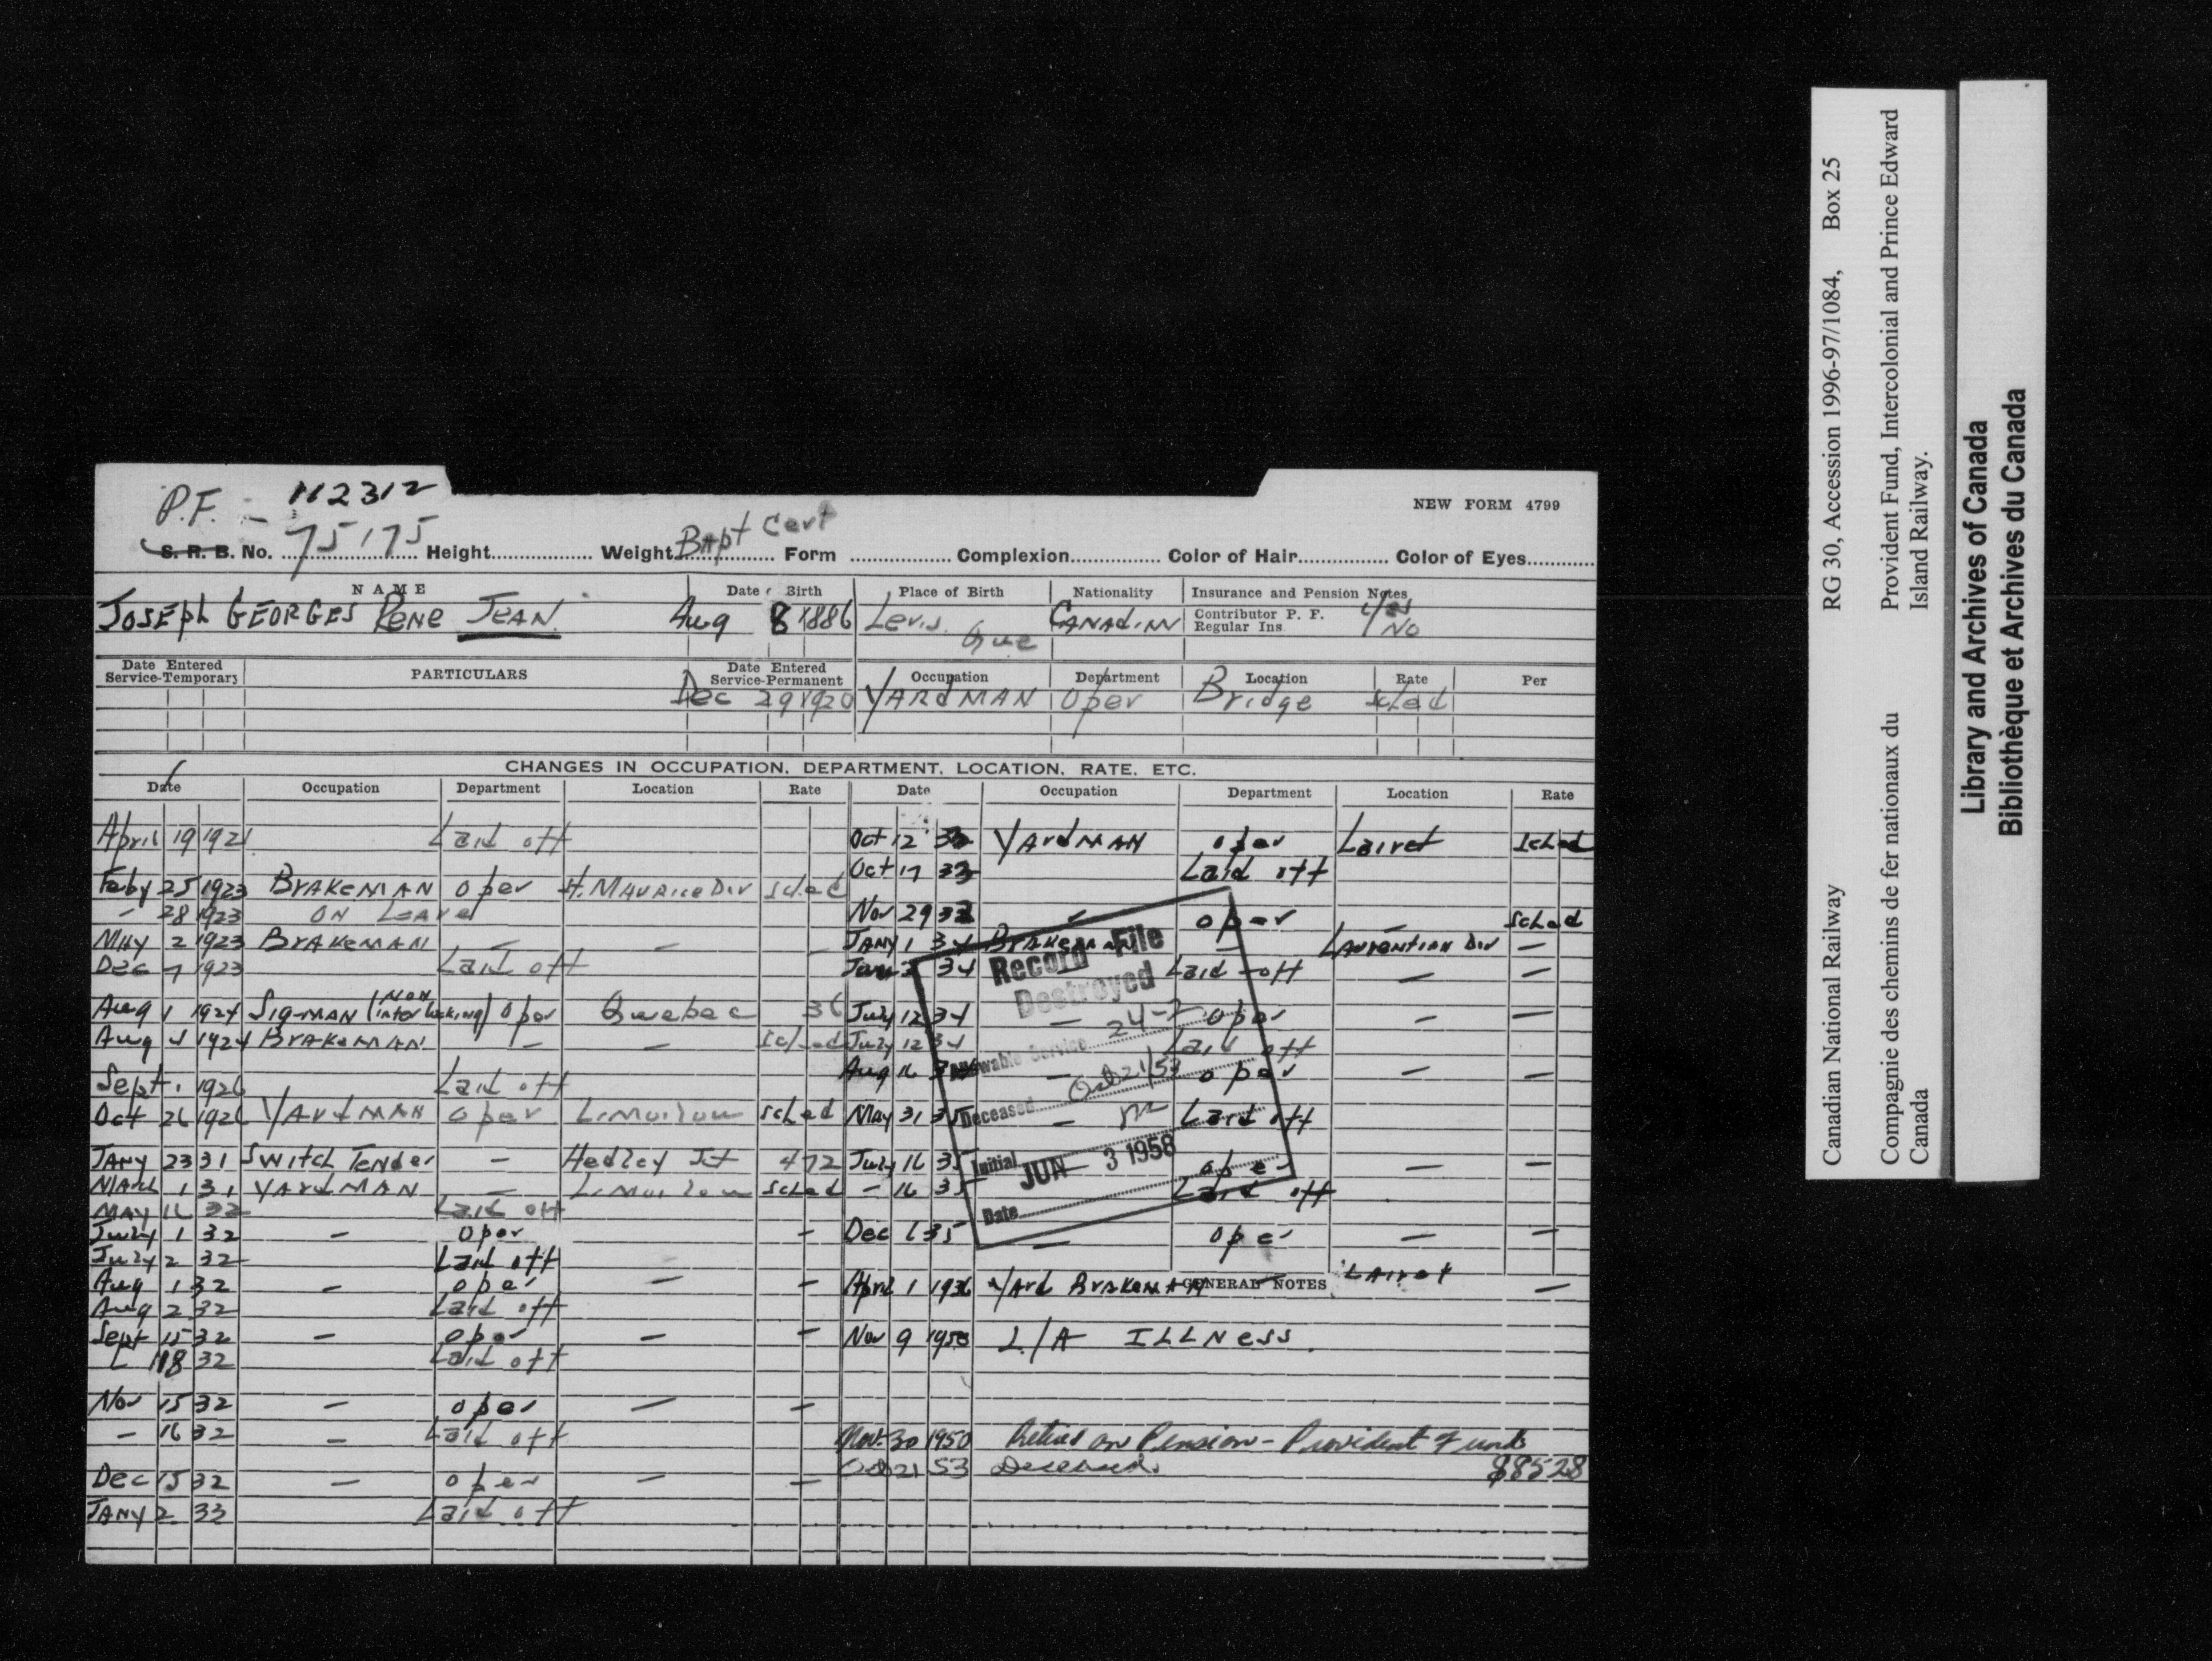 P.F. - 112312
NEW FORM 4799
S. R. B. No. 75175 Height Weight Bapt Cert Form Complexion Color of Hair Color of Eyes
NAME Date Birth Place of Birth Nationality Insurance and Pension Notes
JOSEph GEORGES Rene JEAN Aug 8 1886 Levis Que CANAdiAN Contributor P. F. Yes
Regular Ins No
Date Entered Service-Temporary PARTICULARS Date Entered Service-Permanent Occupation Department Location Rate Per
Dec 29 1920 YARdMAN Oper Bridge scLed
CHANGES IN OCCUPATION, DEPARTMENT, LOCATION, RATE, ETC.
Date Occupation Department Location Rate
April 19 1921 Laid off
Feby 25 1923 BRAKeMAN oper St. MAURice Div scLed
- 28 1923 ON LeAve
MAy 2 1923 BRAKeMAN - - -
Dec 7 1923 Laid off
Aug 1 1924 SigMAN (NON interlocking) oper Quebec 36
Aug 4 1924 BRAKeMAN - - scLed
Sept 1 1926 Laid off
Oct 26 1926 YARdMAN oper LiMoilou scLed
JANy 23 31 SwitcH TeNder - Hedley Jct 472
MArch 1 31 YARdMAN - LiMoilou scLed
MAY 16 32 Laid off
July 1 32 - oper -
July 2 32 Laid off
Aug 1 32 - oper - -
Aug 2 32 Laid off
Sept 15 32 - oper - -
18 32 Laid off
Nov 15 32 - oper - -
- 16 32 - Laid off
Dec 15 32 - oper - -
JANy 2 33 Laid off
Date Occupation Department Location Rate
Oct 12 33 YARdMAN oper Lairet scLed
Oct 17 33 Laid off
Nov 29 33 oper - scLed
JANy 1 34 BRAKeMAN - LAurentiAN Div -
34 Laid off - -
July 12 34 - oper - -
July 12 34 Laid off
Aug 16 - oper - -
May 31 35 - Laid off
July 16 35 oper - -
- 16 35 Laid off
Dec 1 35 - oper - -
GENERAL NOTES
April 1 1936 YArd BrakeMAN Lairet -
Nov 9 1950 L/A ILLNess.
Nov. 30 1950 Retired on Pension - Provident Fund
Oct 21 53 Deceased. $85.28
Record File
Destroyed
Allowable Service 24-7
Deceased Oct 21/53
Initial
JUN 3 1958
Date
Canadian National Railway RG 30, Accession 1996-97/1084, Box 25
Compagnie des chemins de fer nationaux du Provident Fund, Intercolonial and Prince Edward
Canada Island Railway.
Library and Archives of Canada
Bibliothèque et Archives du Canada